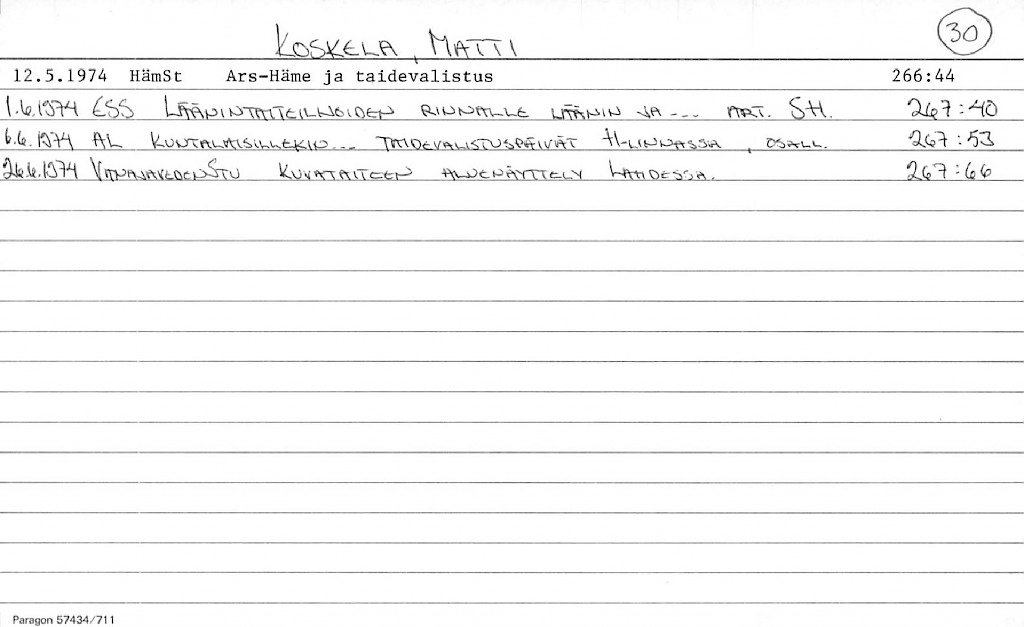 KOSKELA, MATTI
30
12.5.1974 HämSt Ars-Häme ja taidevalistus 266:44
1.6.1974 ESS LÄÄNINTAITEILIJOIDEN RINNALLE LÄÄNIN JA --- ART. SH. 267:40
6.6.1974 AL KUNTALAISILLEKIN... TAIDEVALISTUSPÄIVÄT H-LINNASSA, OSALL. 267:53
26.6.1974 VANAJAVEDENSTU KUVATAITEEN ALUENÄYTTELY LAHDESSA. 267:66
Paragon 57434/711